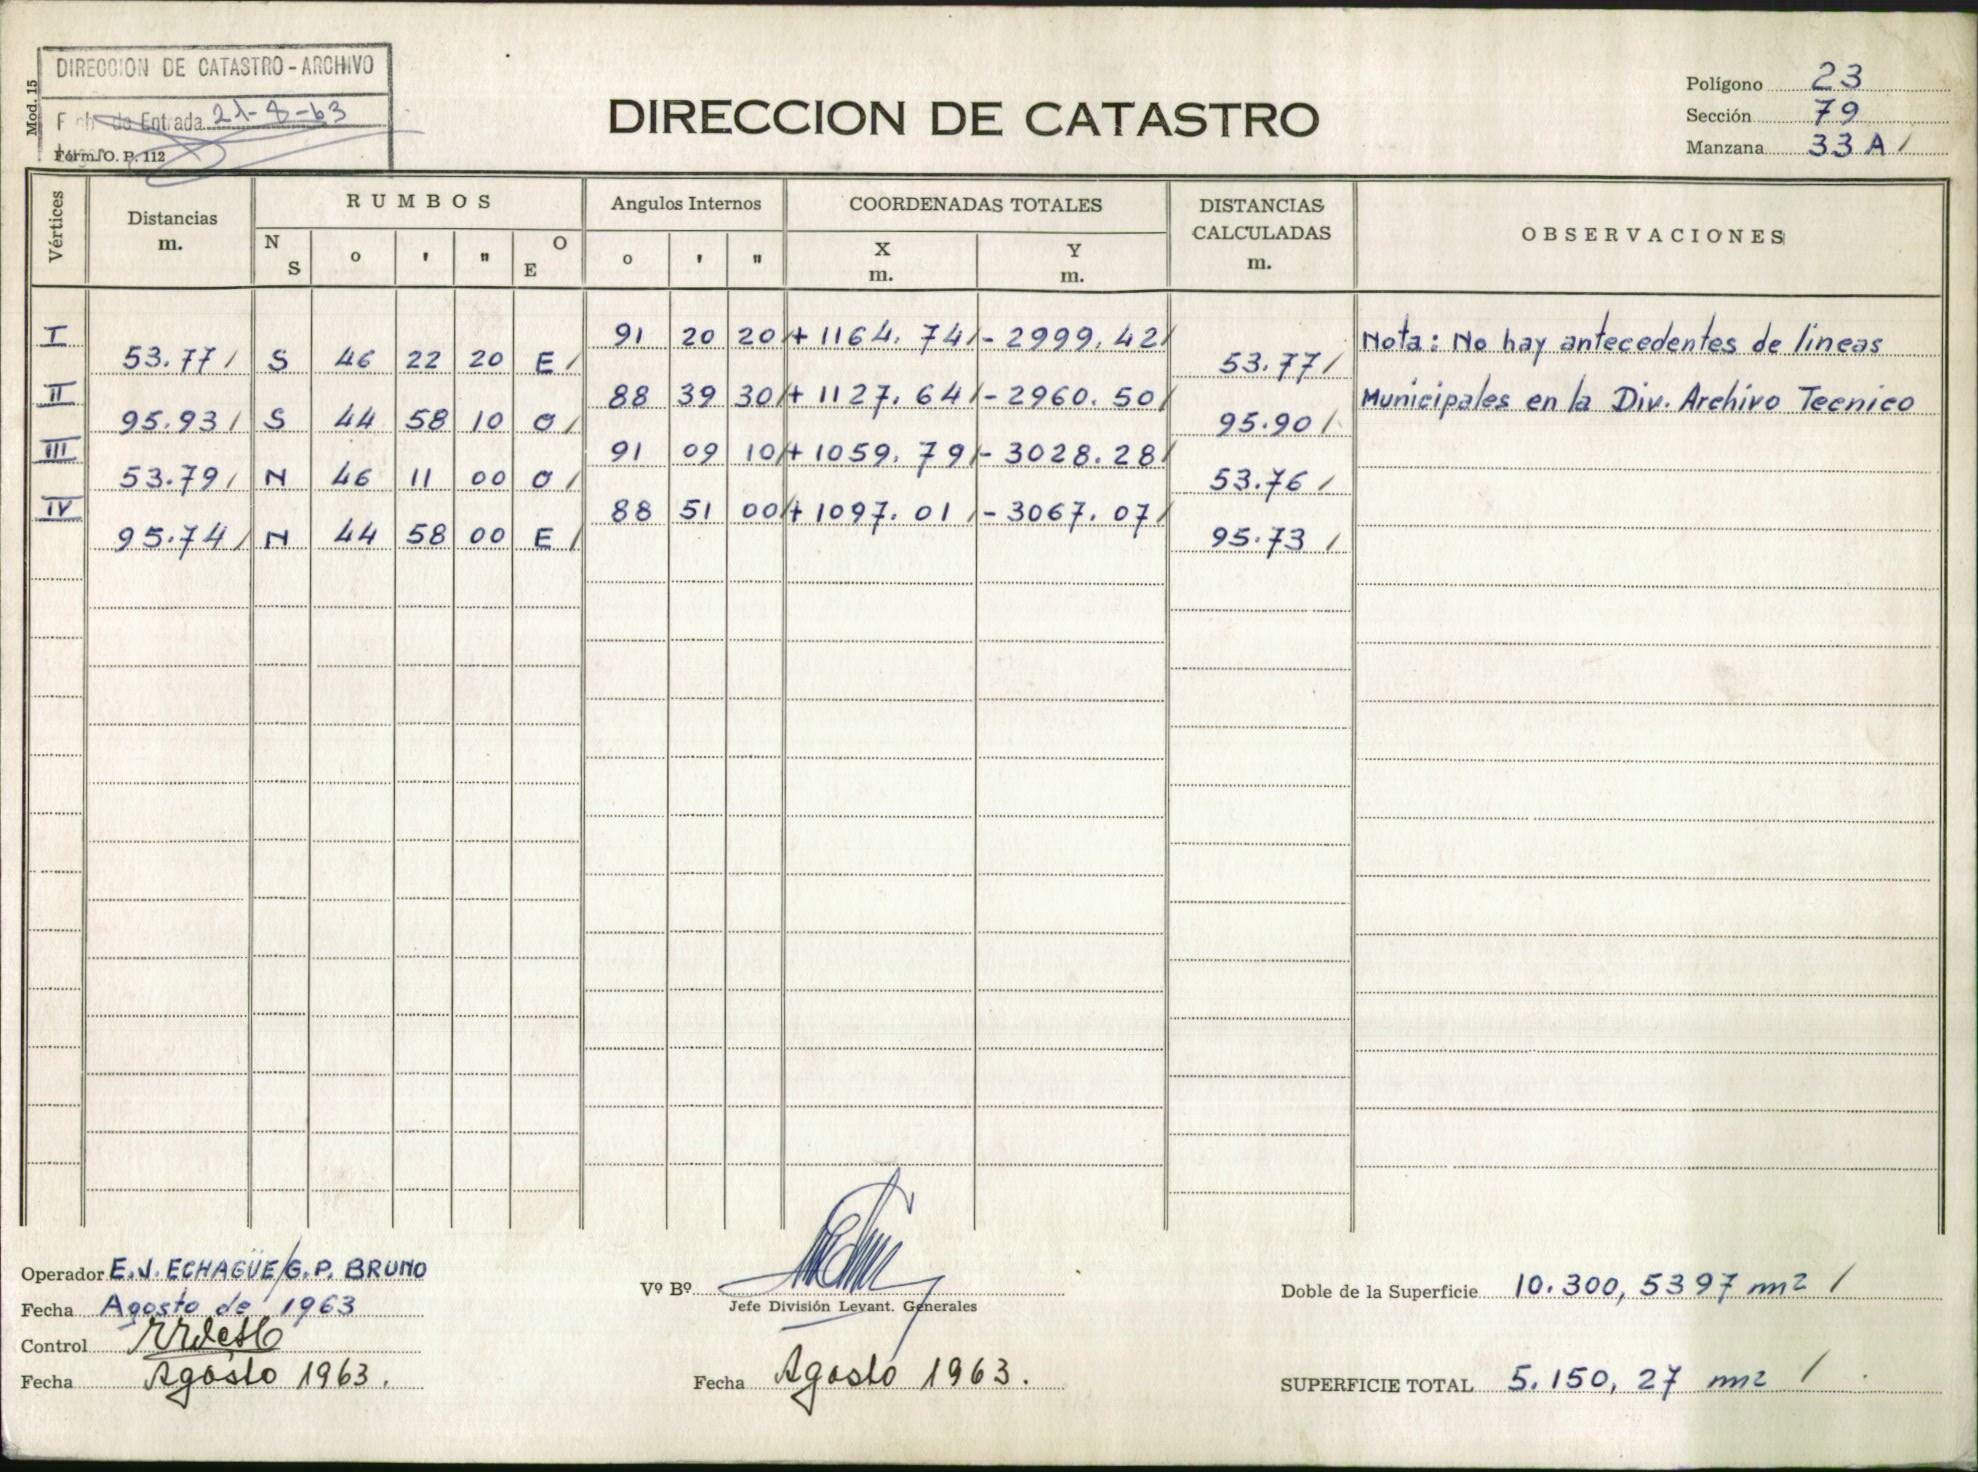 DIRECCION DE CATASTRO - ARCHIVO
Mod. 15
Entrada 21-8-63
Form. O. P. 112
DIRECCION DE CATASTRO
Polígono 23
Sección 79
Manzana 33 A /
Vértices
Distancias
m.
RUMBOS
N S ° ' " O E
Angulos Internos
° ' "
COORDENADAS TOTALES
X m.
Y m.
DISTANCIAS CALCULADAS
m.
OBSERVACIONES
I 91 20 20 + 1164. 74 / - 2999. 42 /
53.77 / S 46 22 20 E / 53.77 /
II 88 39 30 / + 1127. 64 / - 2960. 50 /
95.93 / S 44 58 10 O / 95.90 /
III 91 09 10 / + 1059. 79 / - 3028. 28 /
53.79 / N 46 11 00 O / 53.76 /
IV 88 51 00 / + 1097. 01 / - 3067. 07 /
95.74 / N 44 58 00 E / 95.73 /
Nota: No hay antecedentes de lineas
Municipales en la Div. Archivo Tecnico
Operador E. J. ECHAGÜE/G. P. BRUNO
Fecha Agosto de 1963
Control
Fecha Agosto 1963.
Vº Bº
Jefe División Levant. Generales
Fecha Agosto 1963.
Doble de la Superficie 10.300, 5397 m2 /
SUPERFICIE TOTAL 5.150, 27 m2 /